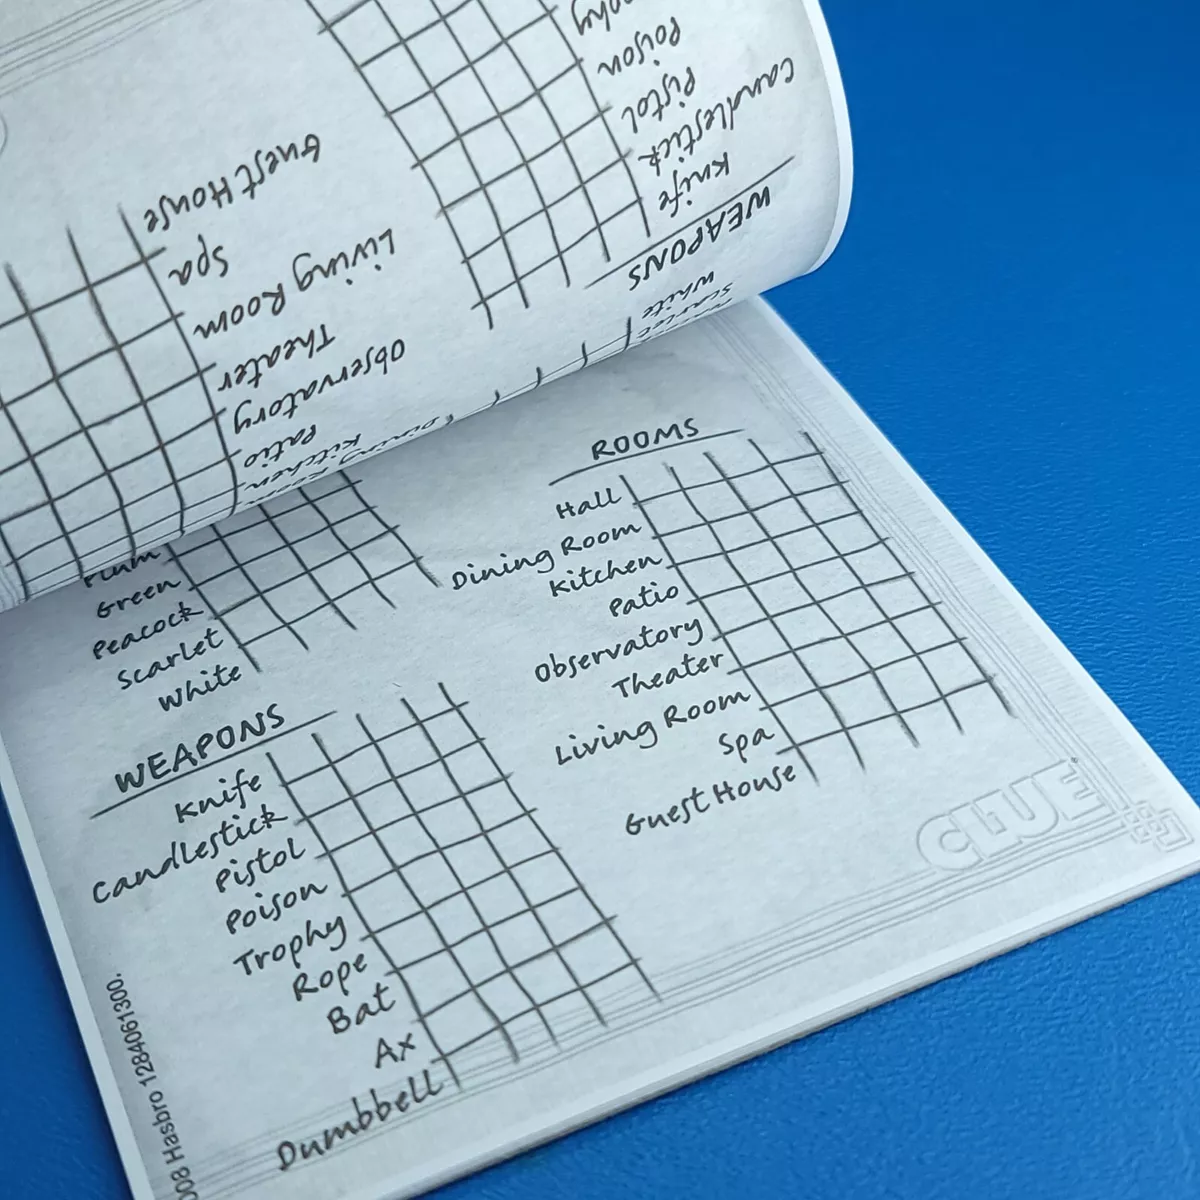 Guest House
Spa
Living Room
Theater
Observatory
Patio
Kitchen
Poison
Pistol
Candlestick
Knife
WEAPONS
White
Scarlet
Plum
Green
Peacock
Scarlet
White
WEAPONS
Knife
Candlestick
Pistol
Poison
Trophy
Rope
Bat
Ax
Dumbbell
ROOMS
Hall
Dining Room
Kitchen
Patio
Observatory
Theater
Living Room
Spa
Guest House
CLUE
008 Hasbro 1284061300.